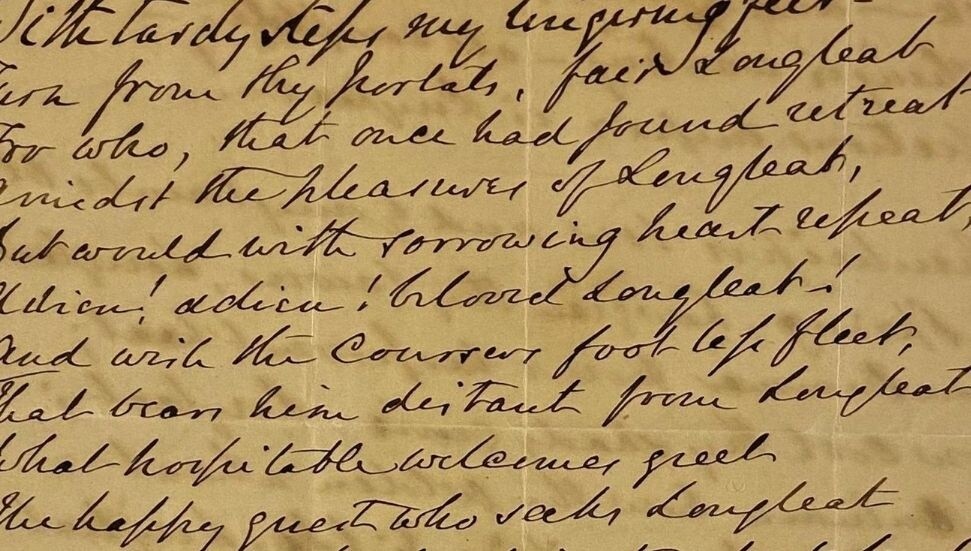 With tardy steps my lingering feet
Turn from thy portals, fair Longleat
For who, that once had found retreat
Amidst the pleasures of Longleat,
But would with sorrowing heart repeat,
Adieu! adieu! beloved Longleat!
And wish the Coursers foot less fleet,
That bears him distant from Longleat
What hospitable welcomes greet
The happy guest who seeks Longleat